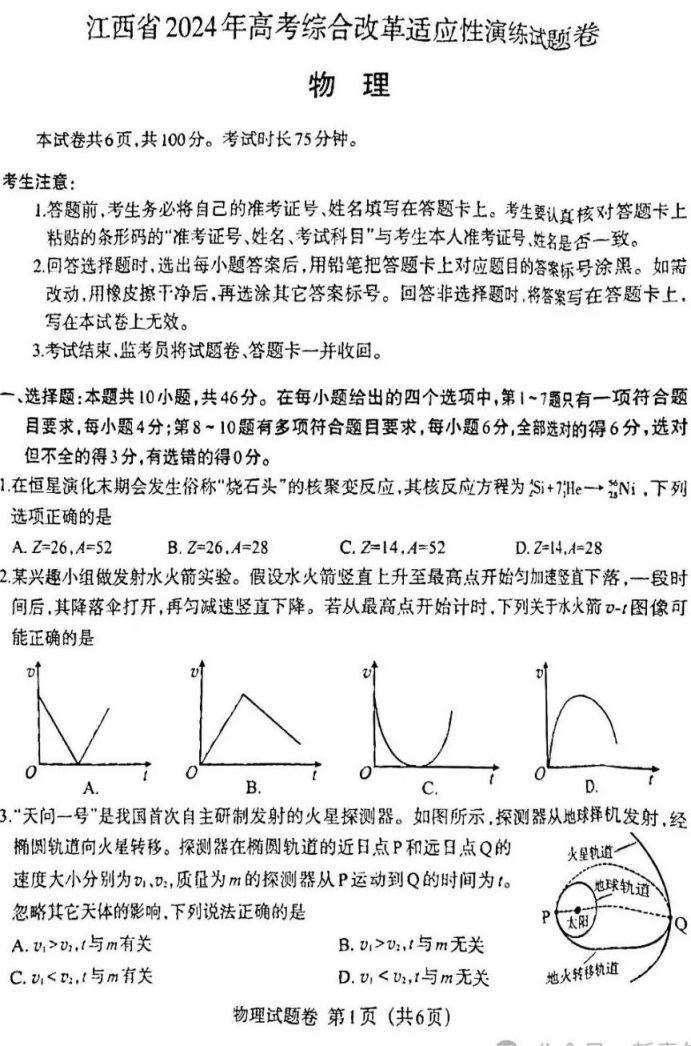 江西省2024年高考综合改革适应性演练试题卷
物 理
本试卷共6页,共100分。考试时长75分钟。
考生注意:
1.答题前,考生务必将自己的准考证号、姓名填写在答题卡上。考生要认真核对答题卡上
粘贴的条形码的“准考证号、姓名、考试科目”与考生本人准考证号、姓名是否一致。
2.回答选择题时,选出每小题答案后,用铅笔把答题卡上对应题目的答案标号涂黑。如需
改动,用橡皮擦干净后,再选涂其它答案标号。回答非选择题时,将答案写在答题卡上,
写在本试卷上无效。
3.考试结束,监考员将试题卷、答题卡一并收回。
一、选择题:本题共10小题,共46分。在每小题给出的四个选项中,第1~7题只有一项符合题
目要求,每小题4分;第8~10题有多项符合题目要求,每小题6分,全部选对的得6分,选对
但不全的得3分,有选错的得0分。
1.在恒星演化末期会发生俗称“烧石头”的核聚变反应,其核反应方程为 ᴬ_ZSi+7⁴₂He→⁵⁶₂₈Ni ,下列
选项正确的是
A. Z=26,A=52 B. Z=26,A=28 C. Z=14,A=52 D. Z=14,A=28
2.某兴趣小组做发射水火箭实验。假设水火箭竖直上升至最高点开始匀加速竖直下落,一段时
间后,其降落伞打开,再匀减速竖直下降。若从最高点开始计时,下列关于水火箭v-t图像可
能正确的是
v v v v
O t O t O t O t
A. B. C. D.
3.“天问一号”是我国首次自主研制发射的火星探测器。如图所示,探测器从地球择机发射,经
椭圆轨道向火星转移。探测器在椭圆轨道的近日点P和远日点Q的
速度大小分别为v₁、v₂,质量为m的探测器从P运动到Q的时间为t。
忽略其它天体的影响,下列说法正确的是
A. v₁>v₂,t与m有关 B. v₁>v₂,t与m无关
C. v₁<v₂,t与m有关 D. v₁<v₂,t与m无关
火星轨道
地球轨道
P 太阳 Q
地火转移轨道
物理试题卷 第1页(共6页)